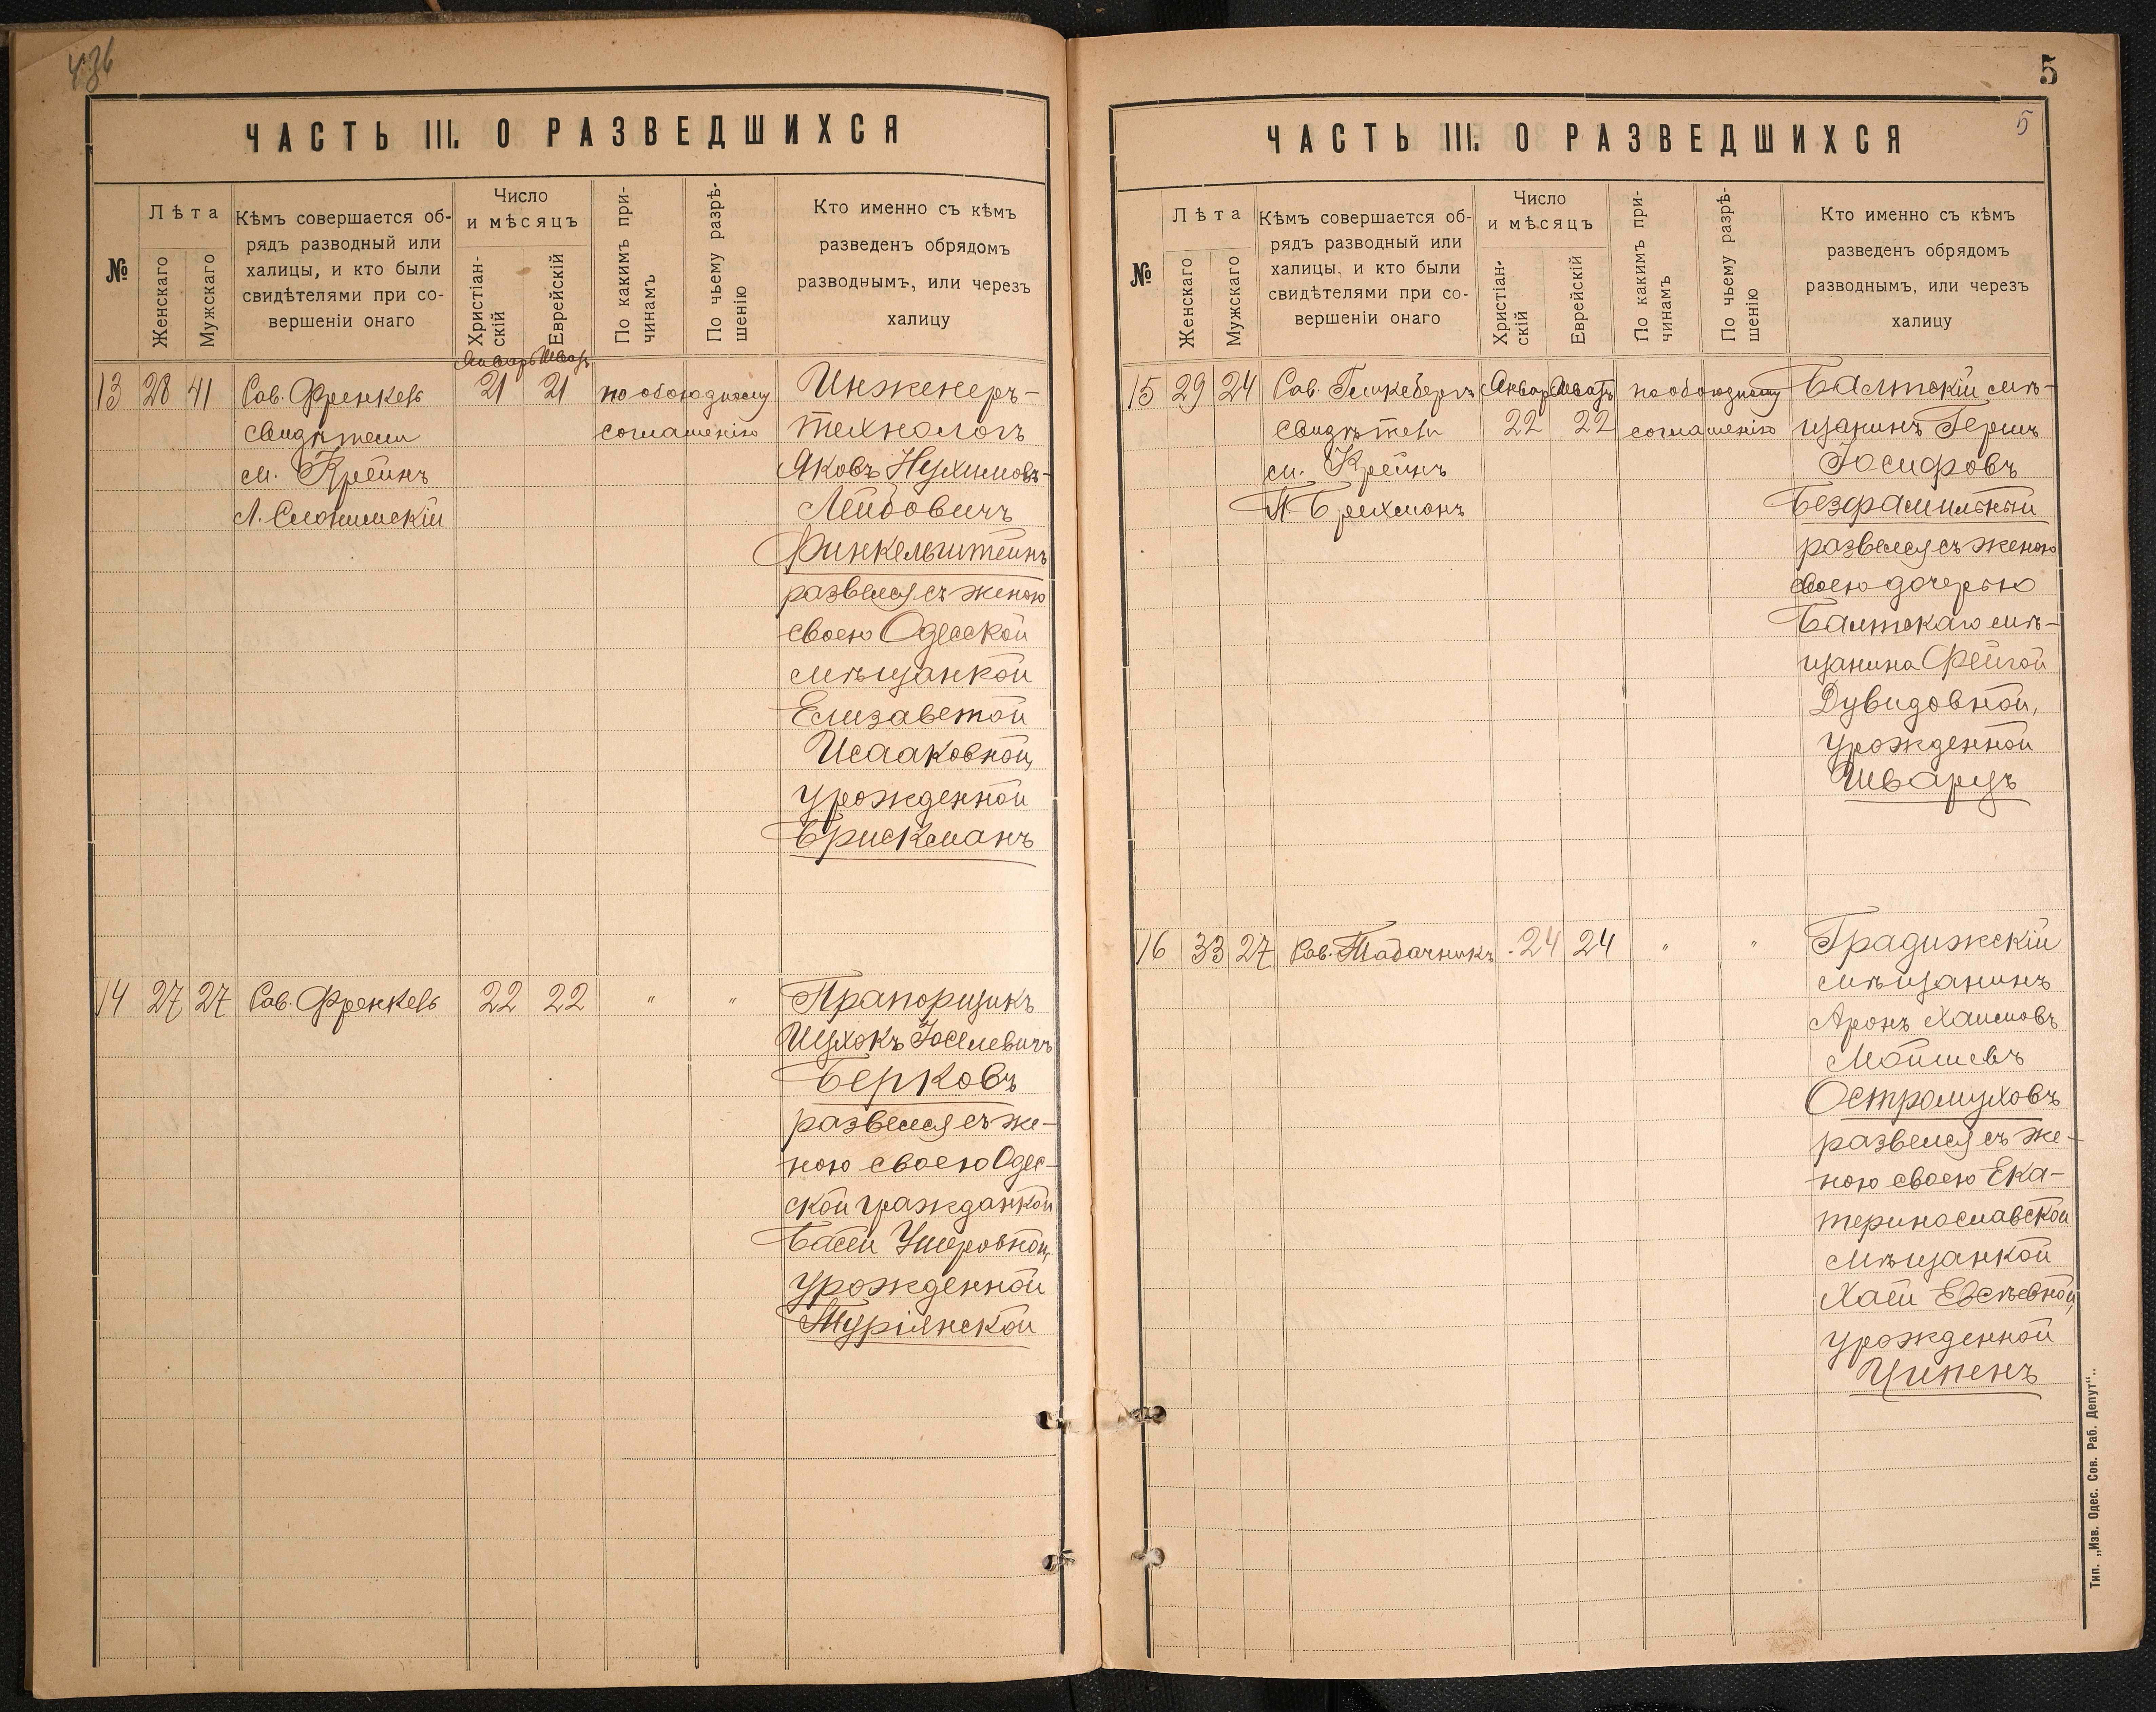 436
ЧАСТЬ III. О РАЗВЕДШИХСЯ
№
Лѣта
Женскаго
Мужскаго
Кѣмъ совершается об-
рядъ разводный или
халицы, и кто были
свидѣтелями при со-
вершеніи онаго
Число
и мѣсяцъ
Христіан-
скій
Еврейскій
По какимъ при-
чинамъ
По чьему разрѣ-
шенію
Кто именно съ кѣмъ
разведенъ обрядомъ
разводнымъ, или черезъ
халицу
Январь Шватъ
13 28 41 Рав. Френкель 21 21 по обоюдному Инженеръ-
свидѣтели соглашенію технологъ
М. Крейнъ Яковъ Нухимовъ-
Л. Слонимскій Лейбовичъ
Финкельштейнъ
развелся съ женою
своею Одесской
мѣщанкой
Елизаветой
Исааковной,
урожденной
Брискманъ
14 27 27 Рав. Френкель 22 22 " " Прапорщикъ
Ицхокъ Іоселевичъ
Берковъ
развелся съ же-
ною своею Одес-
ской гражданкой
Басей Умеровной,
урожденной
Турянской
5
5
ЧАСТЬ III. О РАЗВЕДШИХСЯ
№
Лѣта
Женскаго
Мужскаго
Кѣмъ совершается об-
рядъ разводный или
халицы, и кто были
свидѣтелями при со-
вершеніи онаго
Число
и мѣсяцъ
Христіан-
скій
Еврейскій
По какимъ при-
чинамъ
По чьему разрѣ-
шенію
Кто именно съ кѣмъ
разведенъ обрядомъ
разводнымъ, или черезъ
халицу
15 29 24 Рав. Гликсбергъ Январ Шватъ по обоюдному Балтскій мѣ-
свидѣтели 22 22 соглашенію щанинъ Гершъ
М. Крейнъ Іосифовъ
П. Брихманъ Безфамильный
развелся съ женою
своею дочерью
Балтскаго мѣ-
щанина Фейгой
Дувидовной,
урожденной
Шварцъ
16 33 27 Рав. Табачникъ 24 24 " " Градижскій
мѣщанинъ
Аронъ Хаимовъ
Мойшевъ
Остромуховъ
развелся съ же-
ною своею Ека-
теринославской
мѣщанкой
Хаей Евсѣевной,
урожденной
Ципенъ
Тип. „Изв. Одес. Сов. Раб. Депут“.